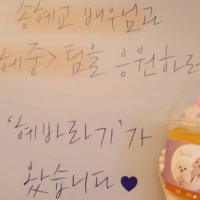 송혜교 배우님과
혜중> 팀을 응원하러
'혜바라기'가
왔습니다♥